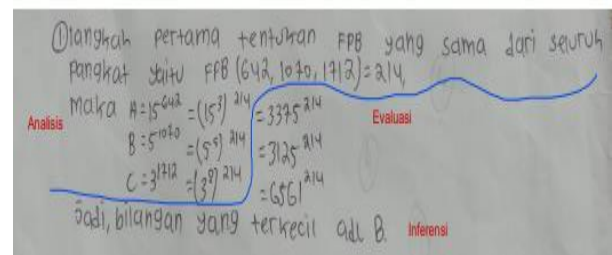 ①langkah pertama tentukan FPB yang sama dari seluruh
pangkat yaitu FPB (642, 1070, 1712) = 214,
maka A = 15^642 = (15^3)^214 = 3375^214
Analisis
Evaluasi
B = 5^1070 = (5^5)^214 = 3125^214
C = 3^1712 = (3^8)^214 = 6561^214
Jadi, bilangan yang terkecil adl B.
Inferensi